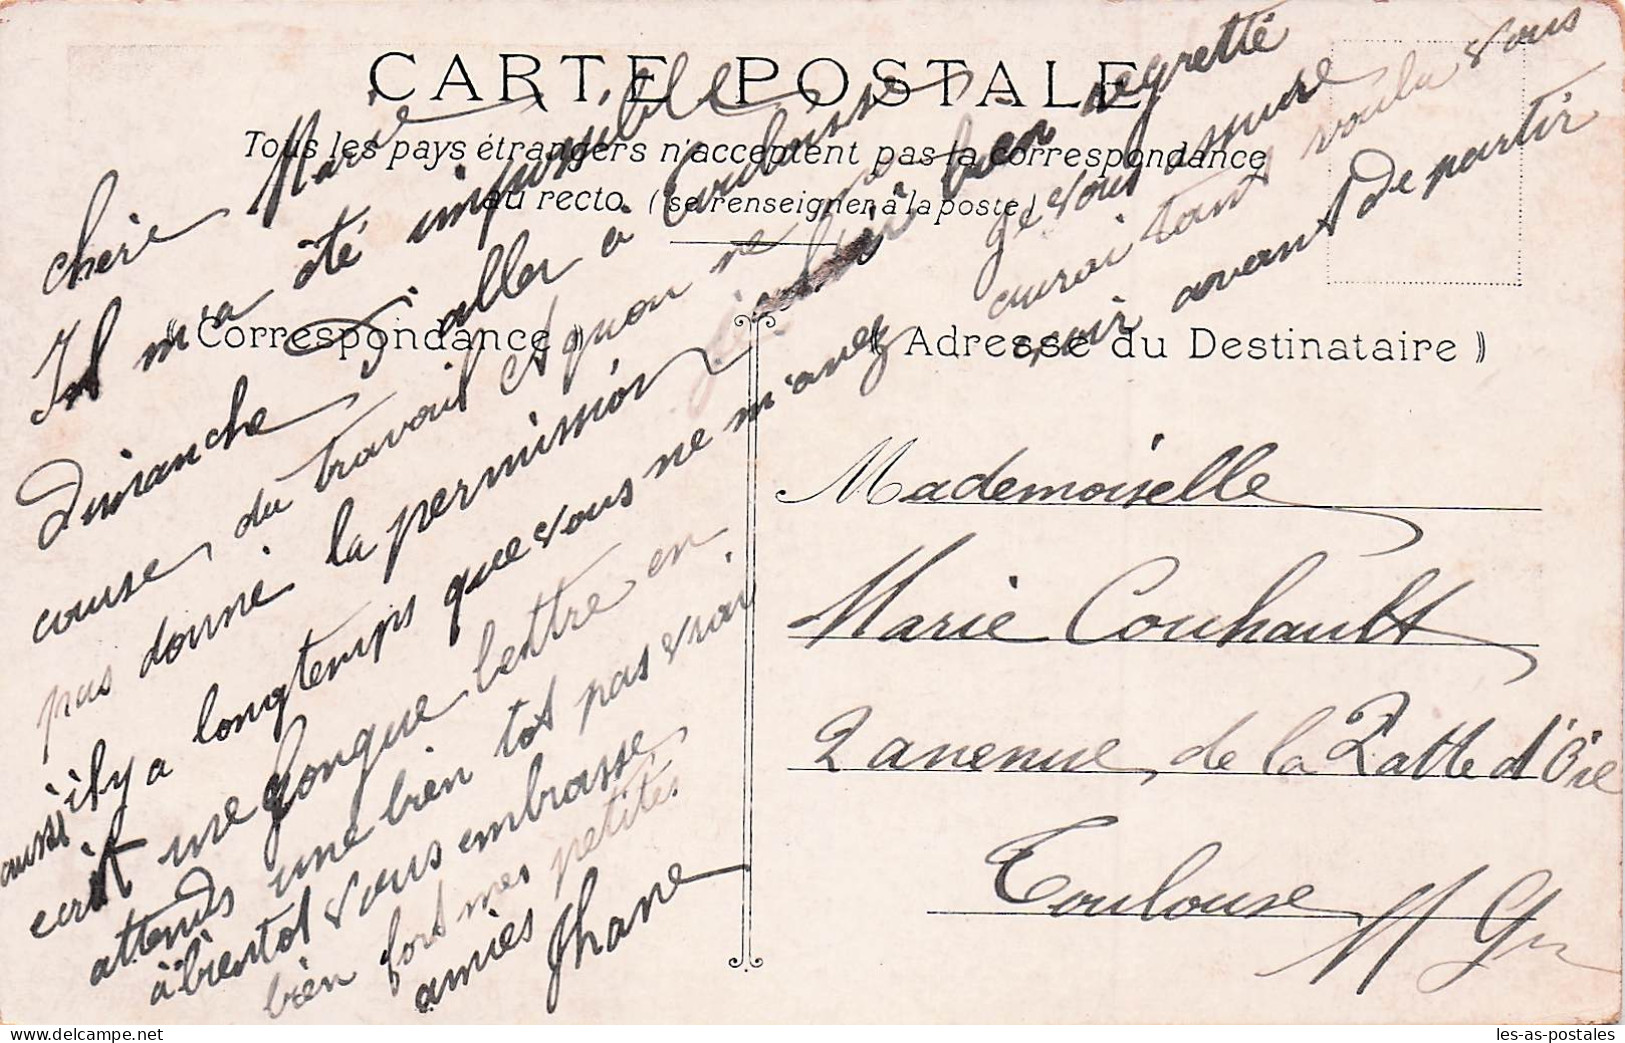 CARTE POSTALE
Tous les pays étrangers n'acceptent pas la correspondance
au recto (se renseigner à la poste)
« Correspondance »
« Adresse du Destinataire »
chère Marie
Il m'a été impossible
Dimanche d'aller à Toulouse
cause, du travail et quon ne
pas donné la permission bien regretté
aussi il y a longtemps que vous ne m'avez
ecrit une longue lettre en
attends une bien tot pas vrai
à bientot vous embrasse
bien fort mes petites
amies Jhane
Je vous assure
aurai tant voulu vous
voir avant de partir
Mademoiselle
Marie Couhault
2 avenue, de la Patte d'Oie
Toulouse
H Gne
les-as-postales.com
les-as-postales